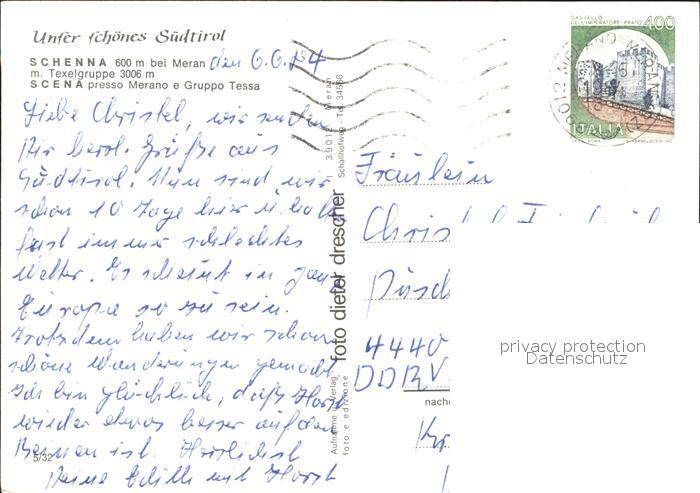 Unser schönes Südtirol
SCHENNA 600 m bei Meran
m. Texelgruppe 3006 m
SCENA presso Merano e Gruppo Tessa
den 6.6.84
Liebe Christel, wir senden
Dir herzl. Grüße aus
Südtirol. Nun sind wir
schon 10 Tage hier u. hatt
fast immer schlechtes
Wetter. Es scheint in ganz
Europa so zu sein.
Trotzdem haben wir schon
schöne Wanderungen gemacht
Ich bin glücklich, daß Horst
wieder etwas besser auf den
Beinen ist. Herzlichst
Deine Edith mit Horst
5/32
Aufnahme u. Verlag
foto e edizione
foto dieter drescher
I 39017 Meran
Schallhofweg - Tel. 34566
CASTELLO
DELL'IMPERATORE-PRATO
400
ITALIA
39012
Fräulein
Chris
4440
DDR
nach
privacy protection
Datenschutz